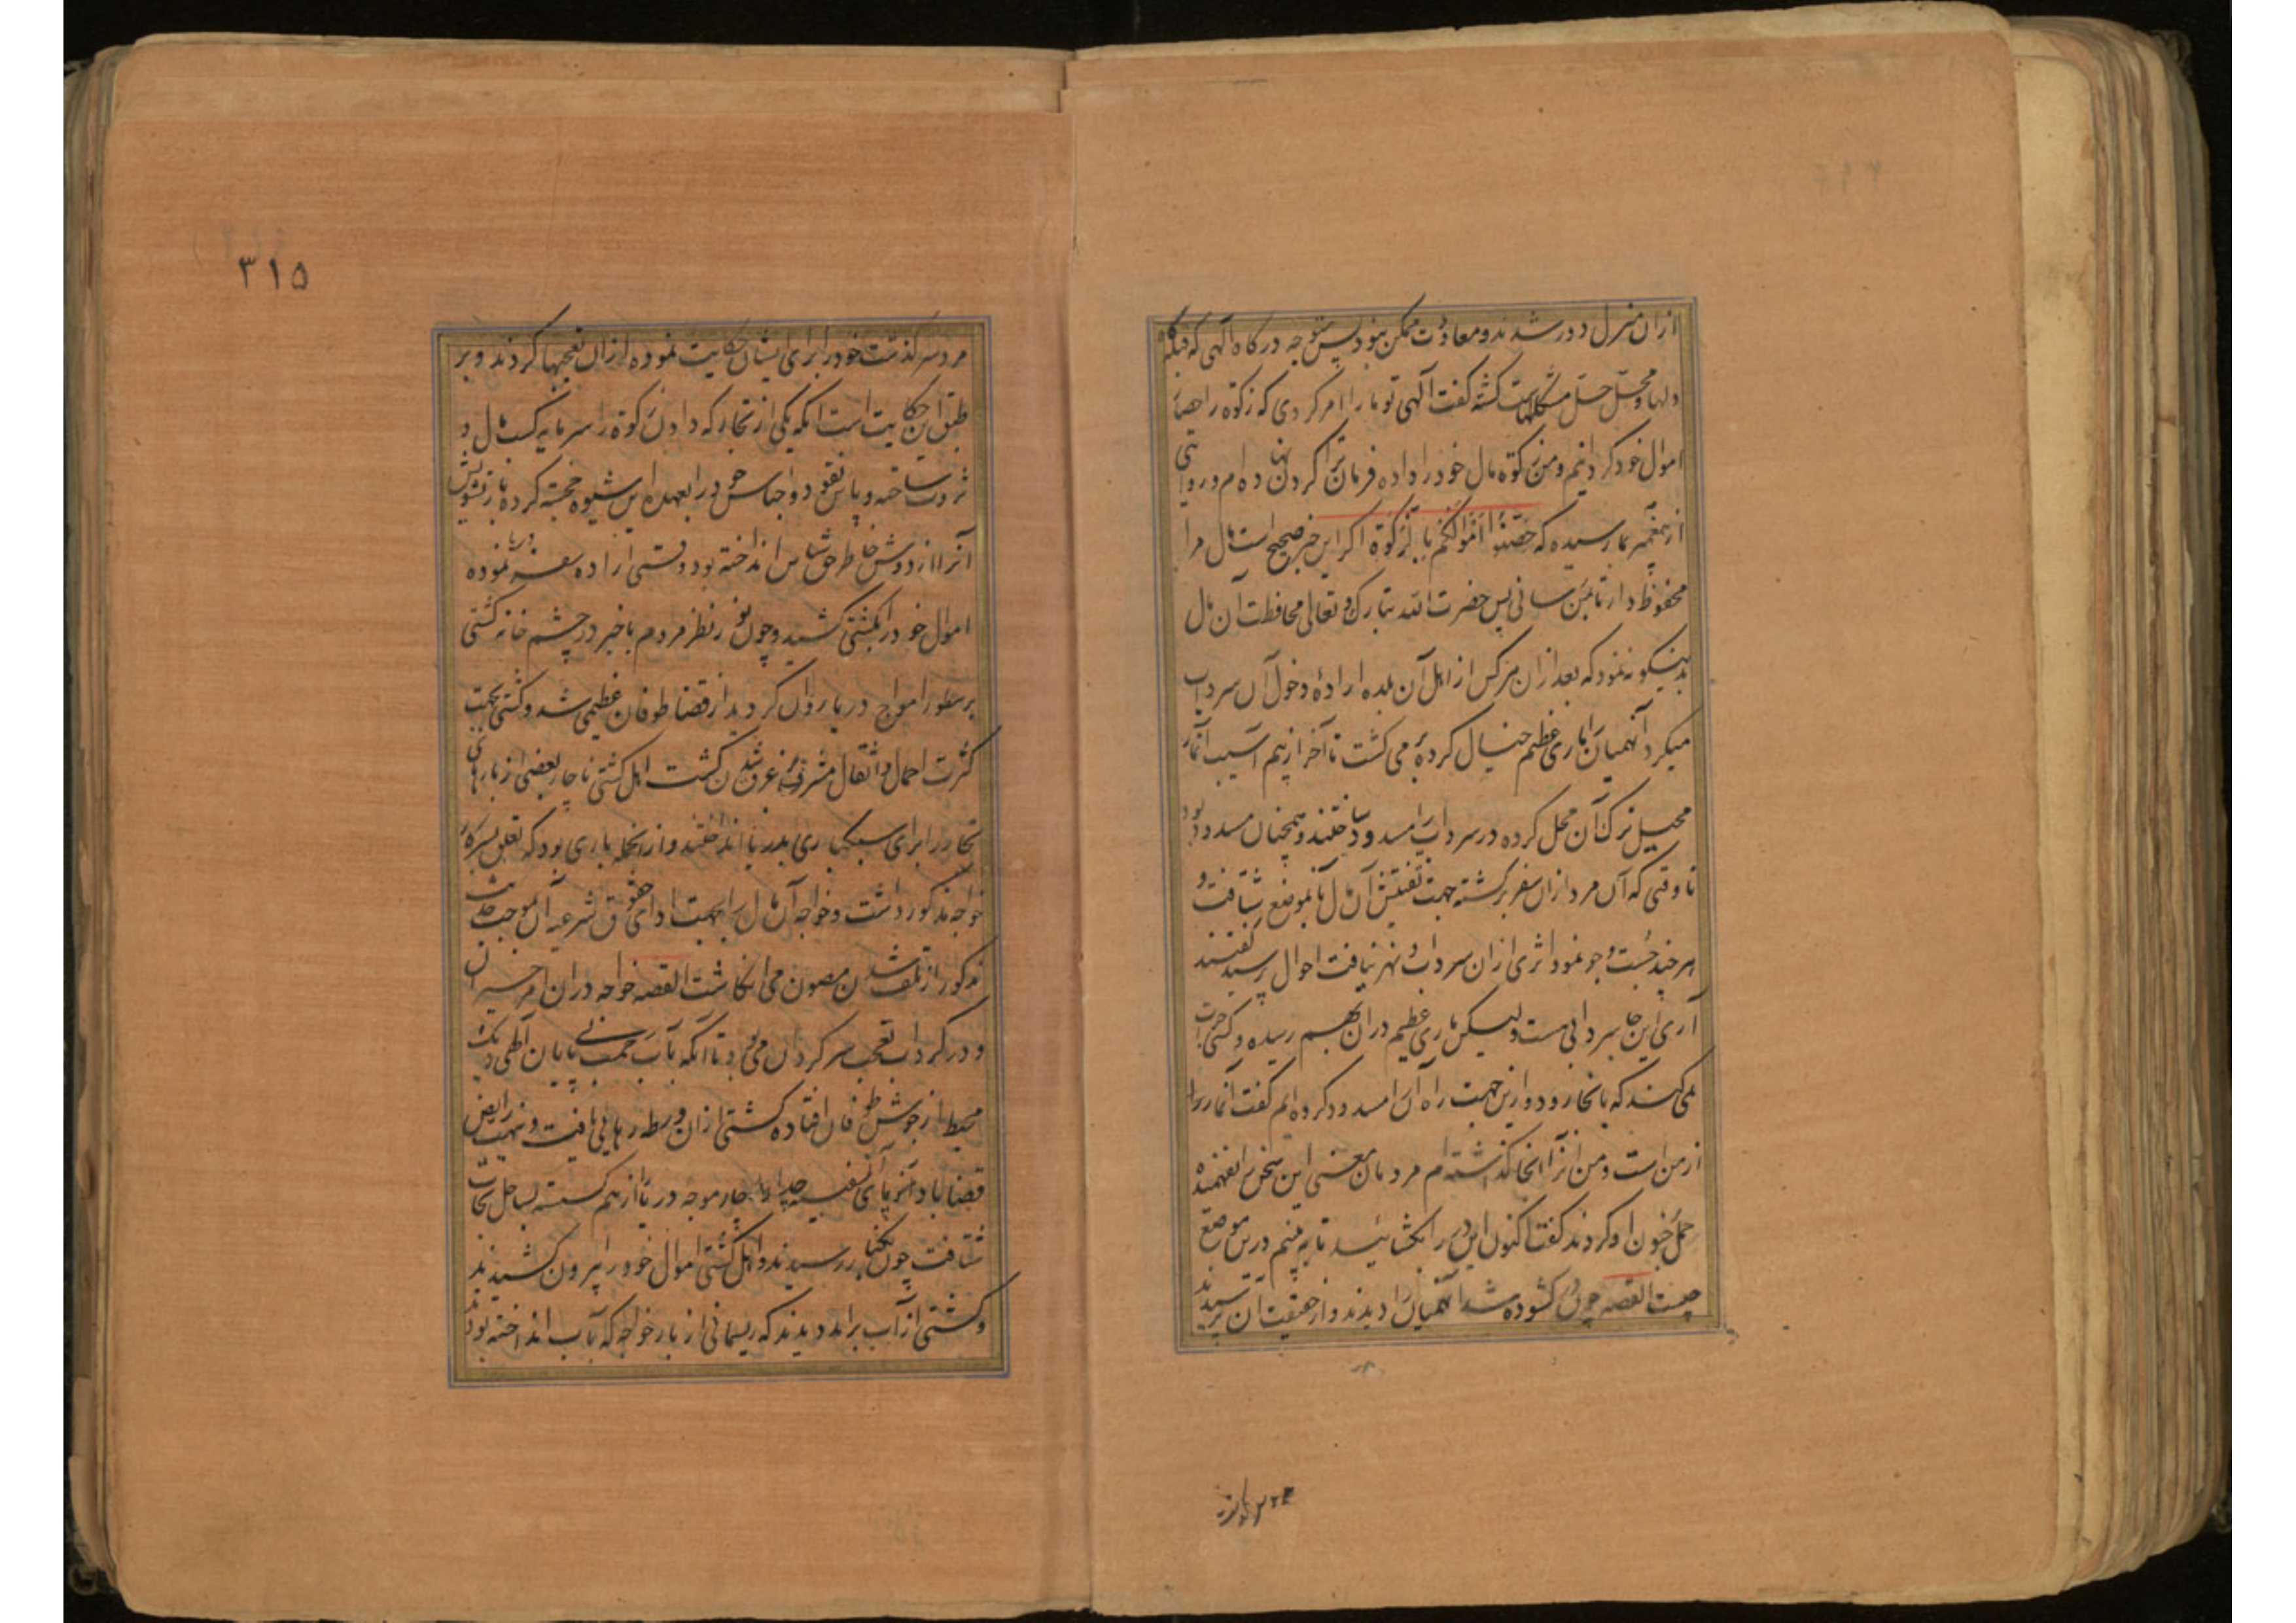 ازان منزل دور شدند و معاودت ممکن نبود پس متوجه درگاه الهی که قبله گاه
دلها و محل حل مشکلهاست گشته گفت آلهی تو ما را امر کردی که زکوة را حصار
اموال خود گردانیم و من زکوة مال خود را داده فرمان ترا گردن نهاده ام و روایتی
از پیغمبر بما رسیده که حَصِّنُوا اَمْوالَکُم بِالزَّکوة اگر این خبر صحیح است مال مرا
محفوظ دار تا بمن رسانی پس حضرت الله تبارک و تعالی محافظت آن مال
بدینگونه نمود که بعد ازان هرکس از اهل آن بلده ارادهٔ دخول آن سرداب
میکرد آنهمیان را ماری عظیم خیال کرده بر می گشت تا آخر از بیم آسیب آنمار
محیل ترک آن محل کرده در سرداب را مسدود ساختند و همچنان مسدود بود
تا وقتی که آن مرد ازان سفر برگشته جهت تفتیش آن مال بآنموضع شتافت و
هر چند جُست و جو نمود اثری ازان سرداب و نهر نیافت احوال پرسید گفتند
آری این جا سردابی هست ولیکن ماری عظیم دران بهم رسیده و کسی جرات
نمی کند که بانجا رود و ازین جهت راه آن را مسدود کرده ایم گفت آنمار را
از من است و من انرا انجا گذاشته ام مردمان معنی این سخن را نفهمیده
حمل بر جنون او کردند گفت اکنون این در را بگشائید تا به بینم درین موضع
چیست القصه چون در گشوده شد آنهمیان را دیدند و از حقیقت آن پرسیدند
۳۱۵
مرد سرگذشت خود را برای ایشان حکایت نموده ازان تعجبها کردند و بر
طبق این حکایت است انکه یکی از تجار که دادن زکوة را سرمایه کسب مال و
ثروت ساخته و پاس نقود و اجناس خود را بعهده این شیوه خجسته کرده بار تشویش
آنرا از دوش خاطر حق شناس انداخته بود وقتی اراده سفر دریا نموده
اموال خود را بکشتی کشید و چون نور نظر مردم باخبر در چشم خانه کشتی
بر سطور امواج دریا روان گردید از قضا طوفان عظیمی شد و کشتی بجهت
کثرت احمال و اثقال مشرف بر غرق شدن گشت اهل کشتی ناچار بعضی از بارهای
تجار را برای سبکباری بدریا انداختند و از انجمله باری بود که تعلق بسرکار
خواجه مذکور داشت و خواجه آن مال را بجهت ادای حقوق شرعیه آن بموجب حدیث
مذکور از تلف شدن مصون می انگاشت القصه خواجه دران امر حیران
و در گرداب تعجب سرگردان می بود تا انکه بآب رحمت بی پایان آلهی دیک
محیط از جوش طوفان افتاده کشتی ازان ورطه رهایی یافت و نهیب رایض
قضا باد را بر پای سفینه جدا یا چار موجه دریا از هم گسسته بساحل نجات
شتافت چون بکنار رسیدند و اهل کشتی اموال خود را بیرون کشیدند
و کشتی از آب برامد دیدند که ریسمانی از بار خواجه که بآب انداخته بودند